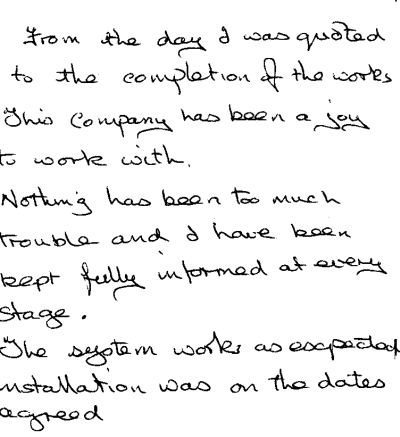 From the day I was quoted
to the completion of the works
This Company has been a joy
to work with.
Nothing has been too much
trouble and I have been
kept fully informed at every
stage.
The system works as expected
installation was on the dates
agreed